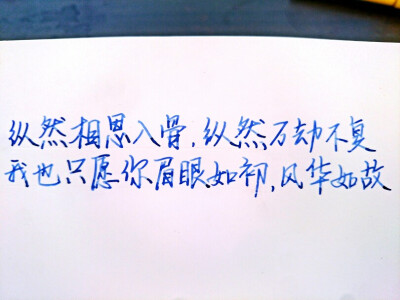 纵然相思入骨,纵然万劫不复
我也只愿你眉眼如初,风华如故